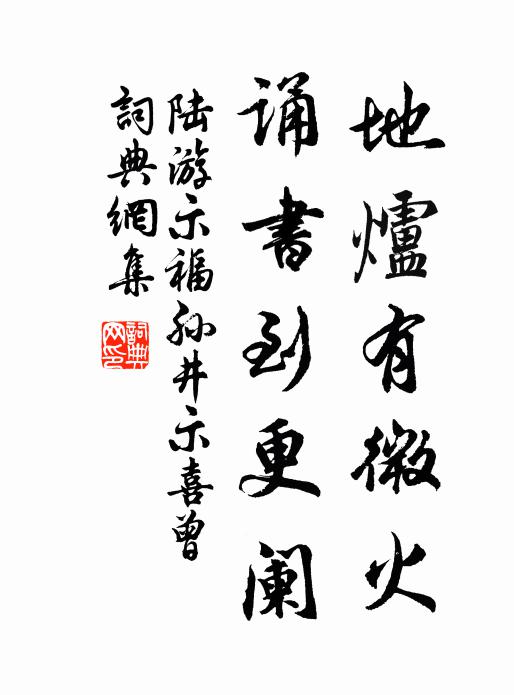 地爐有微火
诵書到更阑
陆游示福孙井示喜曾
詞典網集
詞典网印